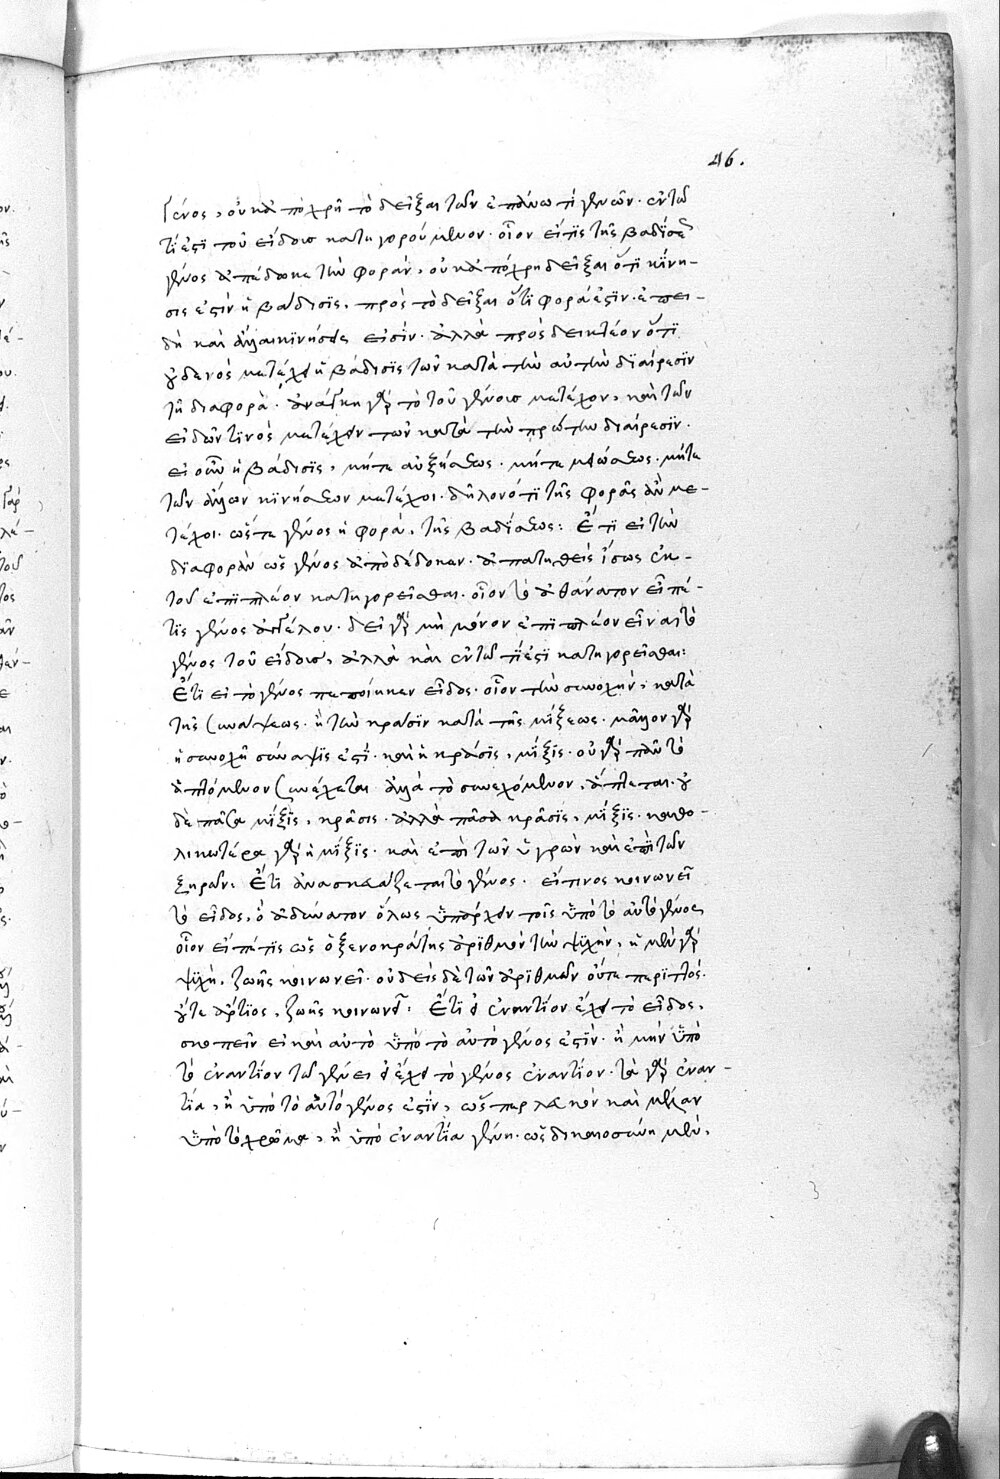 46.
γένος, οὐκ ἀπόχρη τὸ δεῖξαι τῶν ἐπάνω τί γενῶν. ἐν τῶ
τί ἐστι τοῦ εἴδους κατηγορούμενον. οἷον εἴ τις τῆς βαδίσε
γένος ἀπέδωκε τὴν φοράν, οὐκ ἀπόχρη δεῖξαι ὅτι κίνη-
σις ἐστὶν ἡ βάδισις, πρὸς τὸ δεῖξαι ὅτι φορά ἐστιν. ἐπει-
δὴ καὶ ἄλλαι κινήσεις εἰσίν. ἀλλὰ πρὸς δεικτέον ὅτι
οὐδενὸς μετέχει ἡ βάδισις τῶν κατὰ τὴν αὐτὴν διαίρεσιν
τῆ διαφορᾶ. ἀνάγκη γὰρ τὸ τοῦ γένους μετέχον, καὶ τῶν
εἰδῶν τινὸς μετέχειν τῶν κατὰ τὴν πρώτην διαίρεσιν.
εἰ οὖν ἡ βάδισις, μήτε αὐξήσεως. μήτε μειώσεως. μήτε
τῶν ἄλλων κινήσεων μετέχοι. δηλονότι τῆς φορᾶς ἂν με-
τέχοι. ὥστε γένος ἡ φορὰ, τῆς βαδίσεως: Ἔτι εἰ τὴν
διαφορὰν ὡς γένος ἀποδέδωκεν. ἀπατηθεὶς ἴσως ἐκ
τοῦ ἐπιπλέον κατηγορεῖσθαι. οἷον τὸ ἀθάνατον εἶπέ
τις γένος ἀγγέλου. δεῖ γὰρ μὴ μόνον ἐπιπλέον εἶναι τὸ
γένος τοῦ εἴδους, ἀλλὰ καὶ ἐν τῶ τί ἐστι κατηγορεῖσθαι:
Ἔτι εἰ τὸ γένος πεποίηκεν εἶδος. οἷον τὴν συνοχὴν, κατὰ
τῆς συνάψεως. ἢ τὴν κρᾶσιν κατὰ τῆς μίξεως. μᾶλλον γὰρ
ἡ συνοχὴ σύναψις ἐστί. καὶ ἡ κρᾶσις, μίξις. οὐ γὰρ πᾶν τὸ
ἁπτόμενον συνέχεται ἀλλὰ τὸ συνεχόμενον, ἅπτεται. οὐ
δὲ πᾶσα μίξις, κρᾶσις. ἀλλὰ πᾶσα κρᾶσις, μίξις. καθο-
λικωτέρα γὰρ ἡ μίξις. καὶ ἐπὶ τῶν ὑγρῶν καὶ ἐπὶ τῶν
ξηρῶν: Ἔτι ἀνασκευάζεται τὸ γένος. εἴ τινος κοινωνεῖ
τὸ εἶδος, ὃ ἀδύνατον ὅλως ὑπάρχειν τοῖς ὑπὸ τὸ αὐτὸ γένος
οἷον εἴπέ τις ὡς ὁ ξενοκράτης ἀριθμὸν τὴν ψυχὴν, ἡ μὲν γὰρ
ψυχὴ, ζωῆς κοινωνεῖ. οὐδεὶς δὲ τῶν ἀριθμῶν οὔτε περιττός.
οὔτε ἄρτιος, ζωῆς κοινωνεῖ. Ἔτι εἰ ἐναντίον ἔχει τὸ εἶδος,
σκοπεῖν εἰ καὶ αὐτὸ ὑπὸ τὸ αὐτὸ γένος ἐστίν. ἢ μὴν ὑπὸ
τὸ ἐναντίον τῶ γένει εἰ ἔχει τὸ γένος ἐναντίον. τὰ γὰρ ἐναν-
τία, ἢ ὑπὸ τὸ αὐτὸ γένος ἐστίν, ὥσπερ λευκὸν καὶ μέλαν
ὑπὸ τὸ χρῶμα, ἢ ὑπὸ ἐναντία γένη. ὡς δικαιοσύνη μὲν,